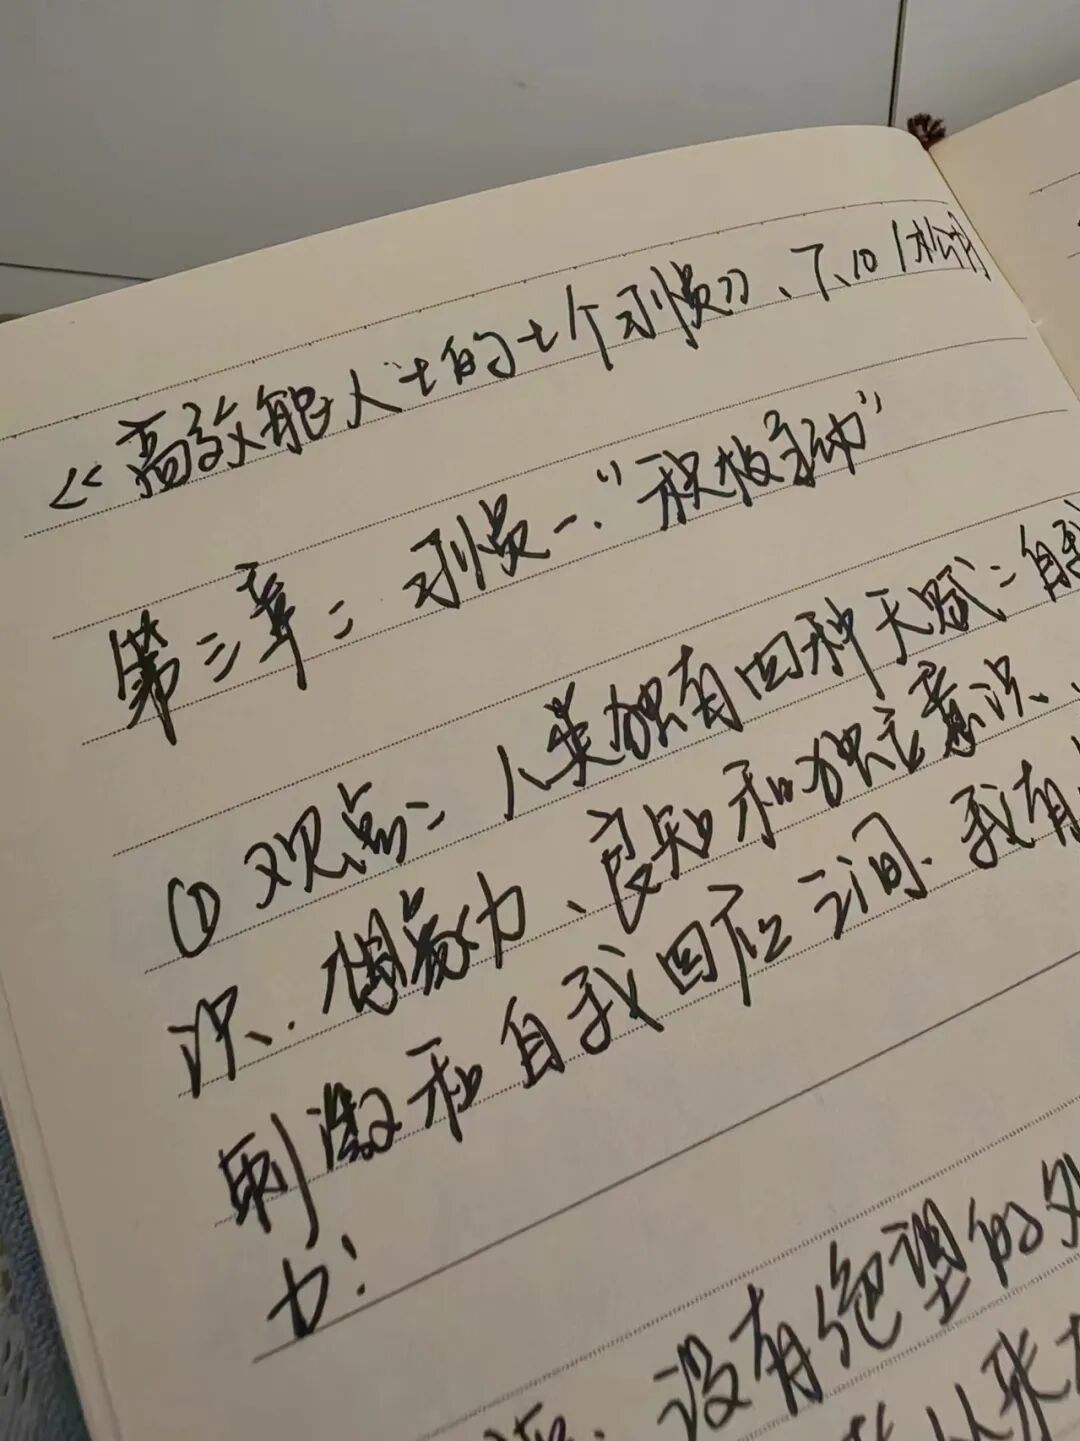 《高效能人士的七个习惯》、下、10
第三章：习惯一：“积极主动”
① 观点：人类独有四种天赋：自我
识、想象力、良知和独立意识、
刺激和自我回应之间、我有
力！
没有绝望的